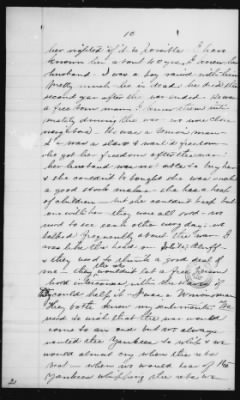 10
her righted if it is possible I have
known her about 40 years I knew her
husband. I was a boy raised with them
pretty much he is dead he died the
second year after the war ended. I was
a free born man I knew them inti-
mately during the war - we were close
neighbors. He was a Union man -
was a slave & wanted freedom -
she got her freedom after the war -
her husband was not able to buy her
& she couldn't be bought she was such
a good stock maker - she has a heap
of children - but she couldn't keep but
one with her they were all sold - we
used to see each other every day; we
talked frequently about the war - I
was like the held on White Bluff
& they used to think a good deal of
me - they wouldn't let a free person
hold intercourse with the slaves if
they could help it. I was a Union man
They both knew my sentiments We
used to wish that the war would
come to an end but we always
wanted the Yankees to whip & we
would almost cry when the rebs
beat - when we would hear of the
Yankees whipping the rebs we
2